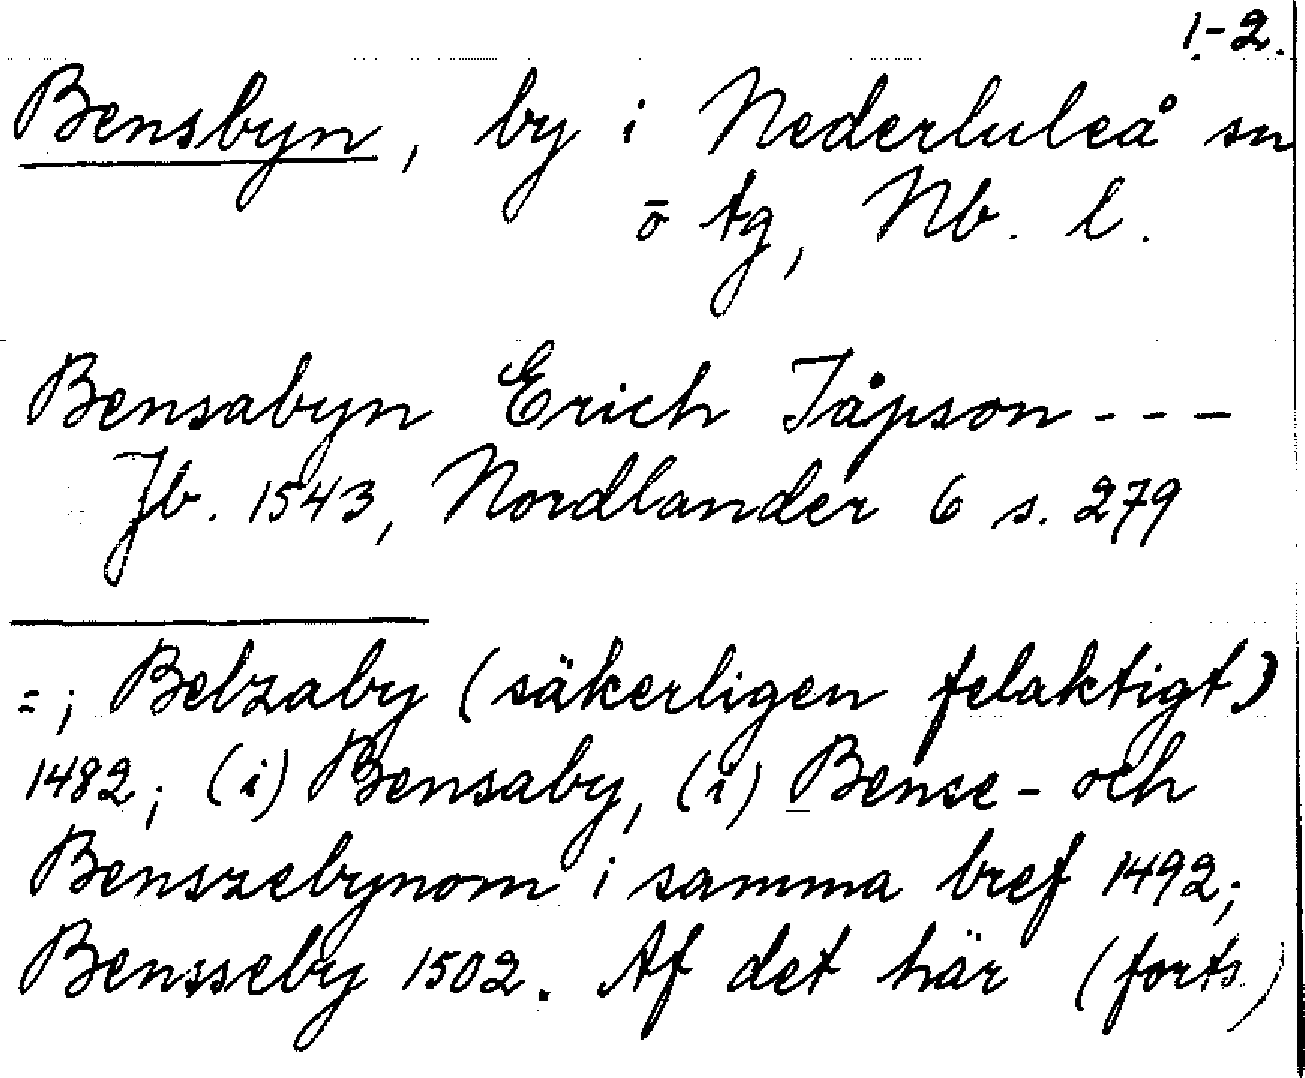 1-2.
Bensbyn, by i Nederluleå sn
ö tg, Nb. l.
Bensabyn Erich Jåpson - - -
Jb. 1543, Nordlander 6 s. 279
=; Belzaby (säkerligen felaktigt)
1482; (i) Bensaby, (i) Bense- och
Benszebynom i samma bref 1492;
Bensseby 1502. Af det här (forts.)